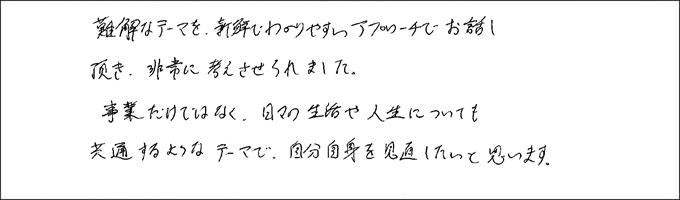 難解なテーマを、新鮮でわかりやすいアプローチでお話し
頂き、非常に考えさせられました。
事業だけではなく、日々の生活や人生についても
共通するようなテーマで、自分自身を見直したいと思います。